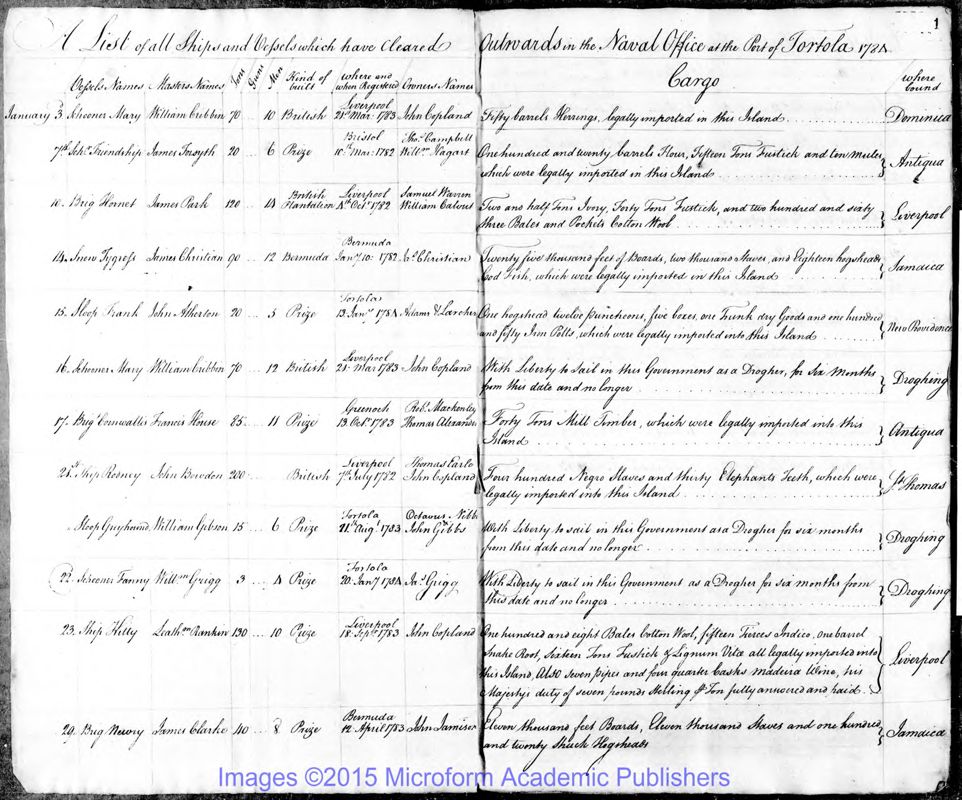 1
A List of all Ships and Vessels which have Cleared Outwards in the Naval Office at the Port of Tortola 1784
Vessels Names Masters Names Tons Guns Men Kind of built where and when Registered Owners Names Cargo where bound
January 3 Schooner Mary William Cribbin 70 10 British Liverpool 21st Mar: 1783 John Copland Fifty barrels Herrings, legally imported in this Island Dominica
7th Schr Friendship James Forsyth 20 6 Prize Bristol 10th Mar: 1782 Thos. Campbell Willm Hagart One hundred and twenty barrels Flour, Fifteen Tons Fustick and ten mules
which were legally imported in this Island Antigua
10. Brig Hornet James Park 120 14 British Plantation Liverpool 4th Octr 1782 Samuel Warren William Calvert Two and half Tons Ivory, Forty Tons Fustick, and two hundred and sixty
three Bales and Pockets Cotton Wool Liverpool
14. Snow Tygress James Christian 90 12 Bermuda Bermuda Jany 10: 1782 Jas Christian Twenty five thousand feet of Boards, two thousand Staves, and Eighteen hogsheads
Cod Fish, which were legally imported in this Island Jamaica
15. Sloop Frank John Atherton 20 5 Prize Tortola 13 Jany 1784 Adams & Larcher One hogshead twelve puncheons, five boxes, one Trunk dry Goods and one hundred
and fifty Iron Potts, which were legally imported into this Island New Providence
16. Schooner Mary William Cribbin 70 12 British Liverpool 21: Mar 1783 John Copland With Liberty to sail in this Government as a Drogher, for six Months
from this date and no longer Droghing
17. Brig Cornwallis Francis House 85 11 Prize Greenock 13 Octr 1783 Robt. Mackenley Thomas Alexander Forty Tons Mill Timber, which were legally imported into this
Island Antigua
21st Ship Rodney John Bowdon 200 British Liverpool 7th July 1782 Thomas Earle John Copland Four hundred Negro Slaves and thirty Elephants Teeth, which were
legally imported into this Island St Thomas
Sloop Greyhound William Gibson 15 6 Prize Tortola 21st Augt 1783 John Gibbs With Liberty to sail in this Government as a Drogher for six months
from this date and no longer Droghing
22. Schooner Fanny Willm Grigg 3 4 Prize Tortola 20 Jany 1784 Jas Grigg With Liberty to sail in this Government as a Drogher for six months from
this date and no longer Droghing
23. Ship Kitty Rankin 130 10 Prize Liverpool 18 Septr 1783 John Copland One hundred and eight Bales Cotton Wool, fifteen Tierces Indico, one barrel
Snake Root, sixteen Tons Fustick & Lignum Vitæ all legally imported into
this Island, Also Seven pipes and four quarter Casks Madeira Wine, his
Majesty's duty of seven pounds Sterling ⅌ Ton fully answered and paid Liverpool
29. Brig Newry James Clarke 40 8 Prize Bermuda 12 April 1783 John Jamison Eleven thousand feet Boards, Eleven thousand Staves and one hundred
and twenty Shuck Hogsheads Jamaica
Images ©2015 Microform Academic Publishers